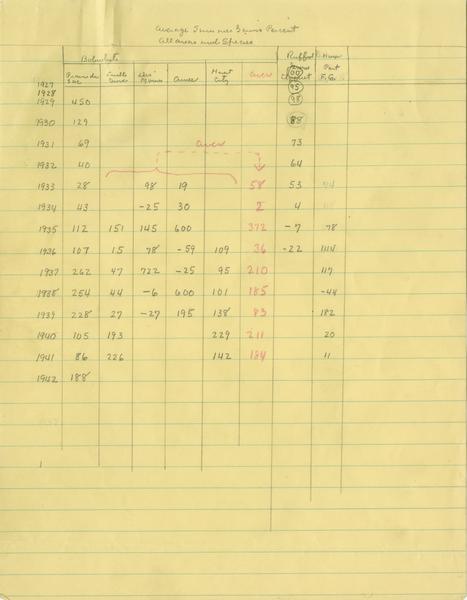 Average Summer Gains Percent
All areas and Species
Bobwhite Ruffed
Prairie du Sac Des Moines Ames Mount City aver
1927 100
1928 95
1929 450 98
1930 129 88
1931 69 aver 73
1932 40 64
1933 28 98 19 58 53
1934 43 -25 30 2 4
1935 112 151 145 600 372 -7 78
1936 107 15 78 -59 109 36 -22 1114
1937 262 47 722 -25 95 210 117
1938 254 44 -6 600 101 185 -44
1939 228 27 -27 195 138 83 182
1940 105 193 229 211 20
1941 86 226 142 184 11
1942 188